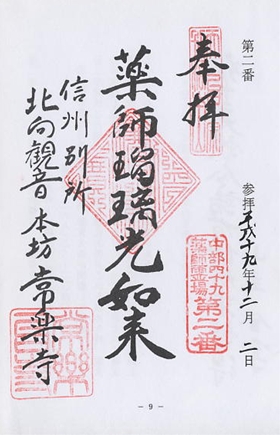 第二番
参拝平成十九年十二月 二日
奉拝
中部四十九
薬師霊場
第二番
藥師瑠璃光如来
信州別所
北向観音 本坊 常楽寺
- 9 -